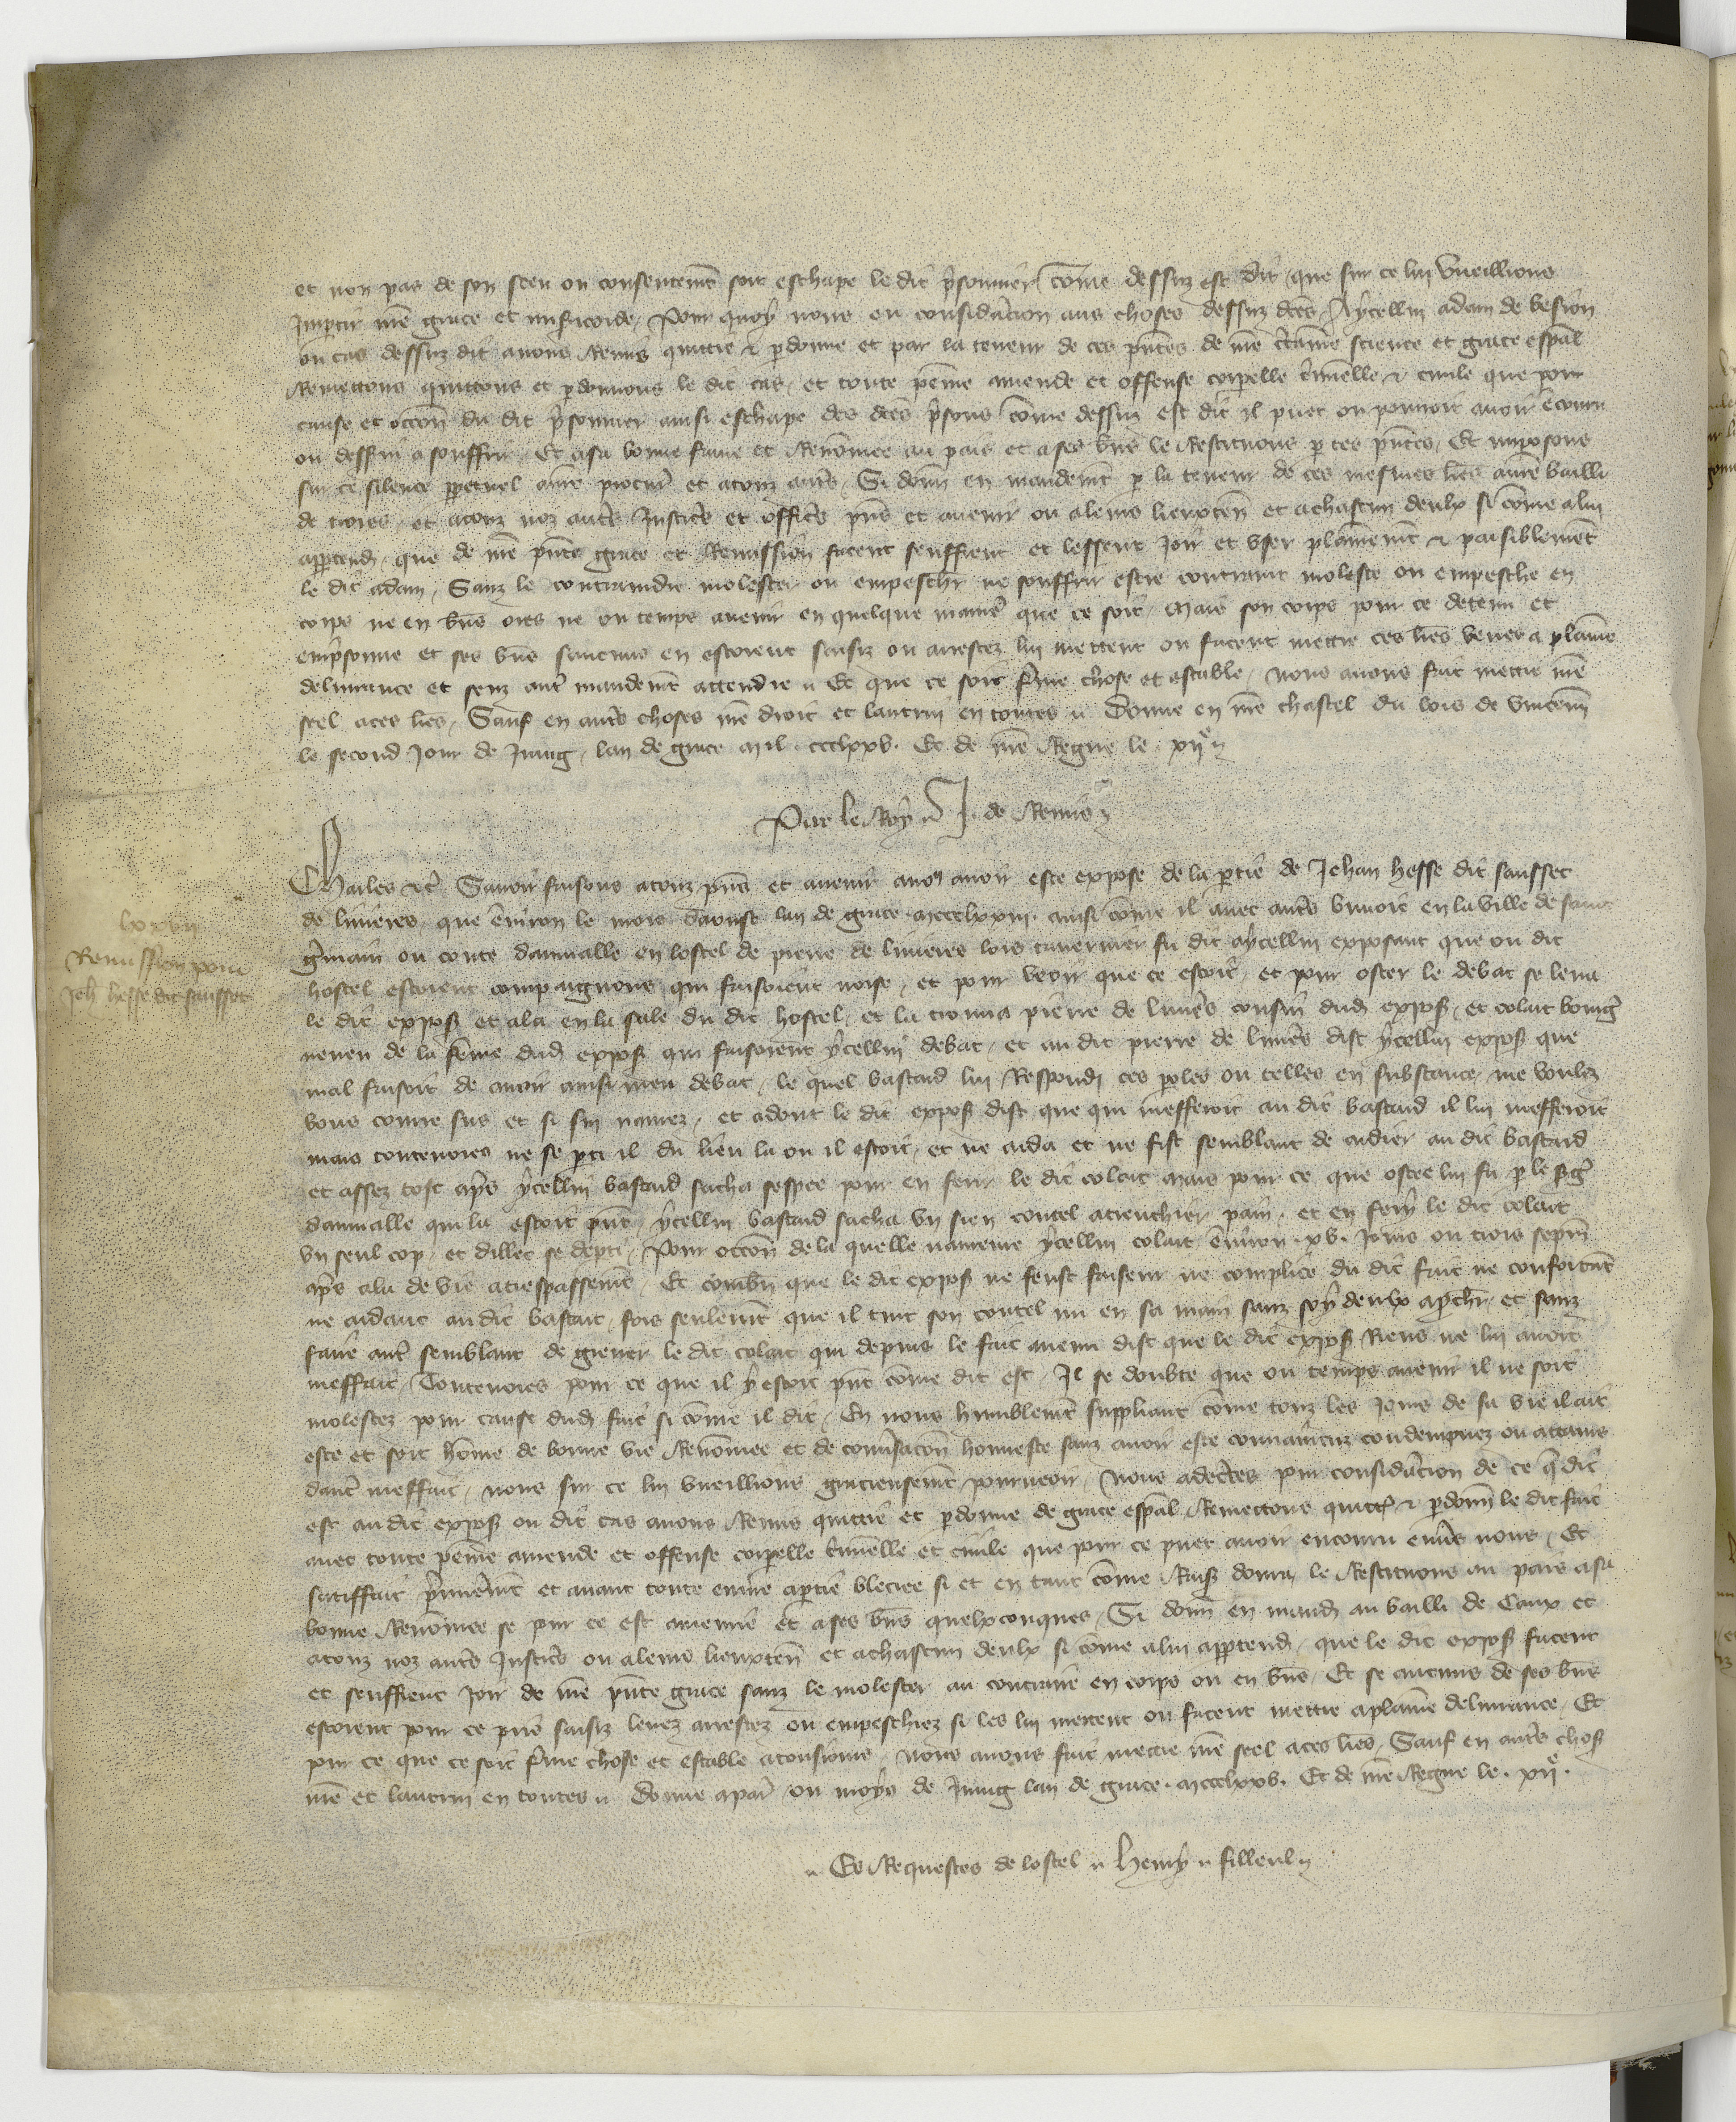 et non pas de son sceu ou consentemt soit eschape le dit psonnier come dessuz est dit que sur ce lui vueillions
Impartir nre grace et misericorde Pour quoy nous eu consideracion aus choses dessuz dces Aycellui adam de
ou cas dessuz dit auons Remis quittie & pdonne et par la teneur de ces pntes de nre ctaine science et grace espal
Remettons quittons et pdonnons le dit cas et toute peine amende et offense corpelle cminelle & ciuile que pour
cause et occon du dit psonnier ainsi eschape des dces psons come dessuz est dit il puet ou pourroit auoir encouru
ou desseruir a souffrir Et a sa bonne fame et Renomee au pais et a ses bns le Restituons p ces pntes Et imposons
sur ce silence ppetuel a nre procur et a touz auts Si donn en mandemt p la teneur de ces mesmes lres a nre bailli
de et a touz noz auts Justics et offics pns et auenir ou a leurs lieuxten et a chascun deulx si come a lui
apptend que de nre pnte grace et Remission facent seuffrent et lessent Joir et vser plainemt & paisiblement
le dit adam Sanz le contraindre molester ou empeschr ne souffrir estre contraint moleste ou empesche en
corps ne en bns ores ne ou temps auenir en quelque manie que ce soit Mais son corps pour ce detenu et
empsonne et ses bns saucuns en estoient saisiz ou arrestez lui mettent ou facent mettre ces lres veues a plaine
deliurance et senz aut mandemt attendre Et que ce soit ferme chose et estable nous auons fait mettre nre
seel a ces lres Sauf en auts choses nre droit et lautrui en toutes Donne en nre chastel du bois de vincenn
le second Jour de Juing lan de grace mil ccclxxv Et de nre Regne le xije
Par le Roy J. de Remis
Charles etc Sauoir faisons a touz pns et auenir a nous auoir este expose de la partie de Jehan hesse dit sausset
de liuieres que enuiron le mois daoust lan de grace mccclxxiii ainsi come il auec auts buuoit en la ville de saint
gmain ou conte daumalle en lostel de pierre de liuieres lors tauernier fu dit aycellui exposant que ou dit
hostel estoient compaignons qui faisoient noise et pour veoir que ce estoit et pour oster le debat se leua
le dit expos et ala en la sale du dit hostel et la trouua pierre de liuiers cousin dud expos et colart
neueu de la feme dud expos qui faisoient ycellui debat et au dit pierre de liuiers dist ycellui expos que
mal faisoit de auoir ainsi meu debat le quel bastard lui Respondi ces paroles ou telles en substance me voulez
vous courre sus et si sui naurez et adont le dit expos dist que qui mefferoit au dit bastard il lui mefferoit
mais toutesuoies ne se pti il du lieu la ou il estoit et ne aida et ne fist semblant de aidier au dit bastard
et assez tost aps ycellui bastard sacha sespee pour en ferir le dit colart mais pour ce que ostee lui fu p le
daumalle qui la estoit pnt ycellui bastard sacha vn sien coutel a trenchier pain et en fery le dit colart
vn seul cop et dillec se depti Pour occon de la quelle naureure ycellui colart enuiron xv Jours ou trois sepm
aps ala de vie a trespassemt Et combn que le dit expos ne feust faiseur ne complice du dit fait ne confortant
ne aidant au dit bastart fors seulemt que il tint son coutel nu en sa main sanz soy deulx apchr et sanz
faire aut semblant de greuer le dit colart qui depuis le fait auenu dist que le dit expos Riens ne lui auoit
meffait Toutesuoies pour ce que il y estoit pnt come dit est Il se doubte que ou temps auenir il ne soit
molestez pour cause dud fait si come il dit En nous humblemt suppliant come touz les Jours de sa vie il ait
este et soit home de bonne vie Renomee et de conusacon honneste sanz auoir este conuaincuz condempnez ou attains
daut meffait nous sur ce lui vueillions gracieusemt pourueoir Nous adcertes pour consideracion de ce q dit
est au dit expos ou dit cas auons Remis quittie et pdonne de grace espal Remettons quitt & pdonn le dit fait
auec toute peine amende et offense corpelle cminelle et ciuile que pour ce puet auoir encouru enuers nous Et
satiffait pmieremt et auant toute euure a ptie bleciee si et en tant come Rais donra le Restituons au pais a sa
bonne Renomee se pour ce est amenrie et a ses bns quelxconques Si donn en mand au bailli de Caux et
a touz noz auts Justics ou a leurs lieuxten et a chascun deulx si come a lui apptend que le dit expos facent
et seuffrent Joir de nre pnte grace sanz le molester au contraire en corps ou en bns Et se aucuns de ses bns
estoient pour ce prins saisiz leuez arrestez ou empeschiez si les lui mettent ou facent mettre a plaine deliurance Et
pour ce que ce soit ferme chose et estable a tousiours nous auons fait mettre nre seel a ces lres Sauf en auts chos
nre et lautrui en toutes Donne a paris ou moys de Juing lan de grace mccclxxv Et de nre Regne le xije
Es Requestes de lostel Henry filleul
Remission pour
Jeh hesse dit sausset